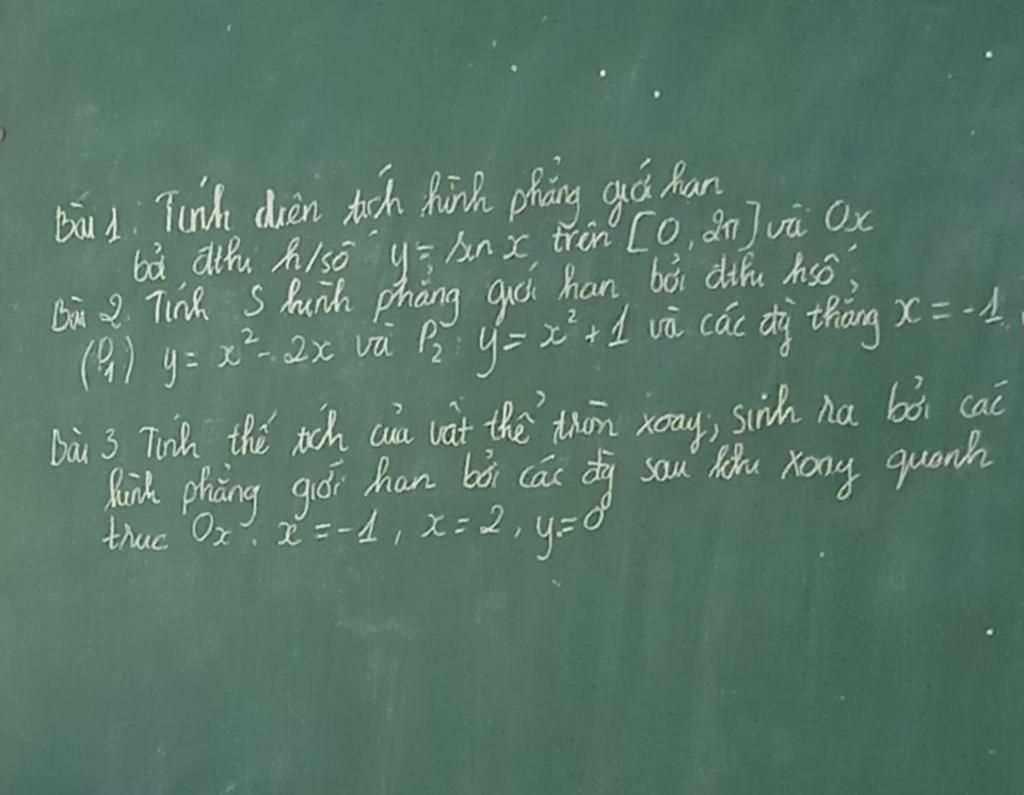 Bài 1. Tính diện tích hình phẳng giới hạn
bởi đthị h/số y = sin x trên [0, 2π] và Ox
Bài 2. Tính S hình phẳng giới hạn bởi đthị hsố,
(P1) y = x² - 2x và P2: y = x² + 1 và các đg thẳng x = -1
Bài 3 Tính thể tích của vật thể tròn xoay, sinh ra bởi các
hình phẳng giới hạn bởi các đg sau khi xoay quanh
trục Ox. x = -1, x = 2, y = 0